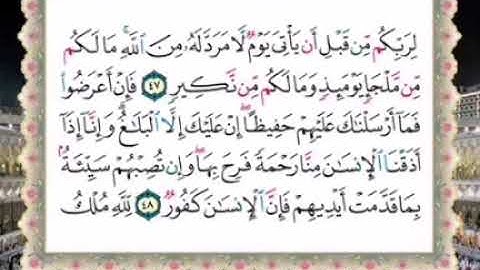 لِرَبِّكُم مِّن قَبْلِ أَن يَأْتِىَ يَوْمٌ لَّا مَرَدَّ لَهُۥ مِنَ ٱللَّهِ ۚ مَا لَكُم
مِّن مَّلْجَإٍ يَوْمَئِذٍ وَمَا لَكُم مِّن نَّكِيرٍ ٤٧ فَإِنْ أَعْرَضُوا۟
فَمَآ أَرْسَلْنَٰكَ عَلَيْهِمْ حَفِيظًا ۖ إِنْ عَلَيْكَ إِلَّا ٱلْبَلَٰغُ ۗ وَإِنَّآ إِذَآ
أَذَقْنَا ٱلْإِنسَٰنَ مِنَّا رَحْمَةً فَرِحَ بِهَا ۖ وَإِن تُصِبْهُمْ سَيِّئَةٌۢ
بِمَا قَدَّمَتْ أَيْدِيهِمْ فَإِنَّ ٱلْإِنسَٰنَ كَفُورٌ ٤٨ لِّلَّهِ مُلْكُ